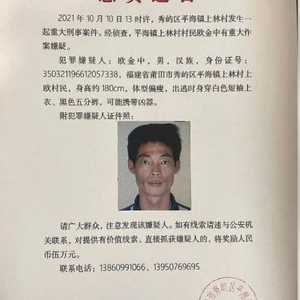 2021 年 10 月 10 日 13 时许，秀屿区平海镇上林村发生一
起重大刑事案件。经侦查，平海镇上林村村民欧金中有重大作
案嫌疑。
犯罪嫌疑人：欧金中，男，汉族，身份证号：
350321196612057338，福建省莆田市秀屿区平海镇上林村上
欧村民，身高约 180cm，体型偏瘦，出逃时身穿白色短袖上
衣、黑色五分裤，可能携带凶器。
附犯罪嫌疑人证件照：
请广大群众，注意发现该嫌疑人。如有线索请速与公安机
关联系，对提供有价值线索、直接抓获嫌疑人的，将奖励人民
币伍万元。
联系电话：13860991066、13950769695